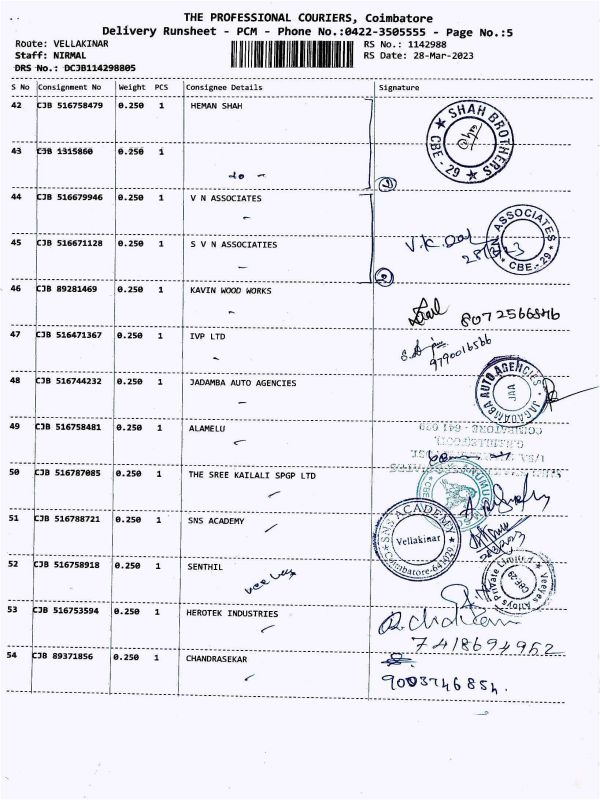 THE PROFESSIONAL COURIERS, Coimbatore
Delivery Runsheet - PCM - Phone No.:0422-3505555 - Page No.:5
Route: VELLAKINAR RS No.: 1142988
Staff: NIRMAL RS Date: 28-Mar-2023
DRS No.: DCJB114298805
S No Consignment No Weight PCS Consignee Details Signature
42 CJB 516758479 0.250 1 HEMAN SHAH
SHAH BROTHERS
CBE - 29
43 CJB 1315860 0.250 1
44 CJB 516679946 0.250 1 V N ASSOCIATES
ASSOCIATES
CBE - 29
45 CJB 516671128 0.250 1 S V N ASSOCIATIES
46 CJB 89281469 0.250 1 KAVIN WOOD WORKS
8072566846
47 CJB 516471367 0.250 1 IVP LTD
9790016566
48 CJB 516744232 0.250 1 JADAMBA AUTO AGENCIES
JAGADAMBA AUTO AGENCIES
JAA
49 CJB 516758481 0.250 1 ALAMELU
COIMBATORE - 641 029
50 CJB 516787085 0.250 1 THE SREE KAILALI SPGP LTD
51 CJB 516788721 0.250 1 SNS ACADEMY
SNS ACADEMY
Vellakinar
Coimbatore-641029
52 CJB 516758918 0.250 1 SENTHIL
Veeyes Alloys Private Limited
CBE-29
53 CJB 516753594 0.250 1 HEROTEK INDUSTRIES
7418694962
54 CJB 89371856 0.250 1 CHANDRASEKAR
9003746854.